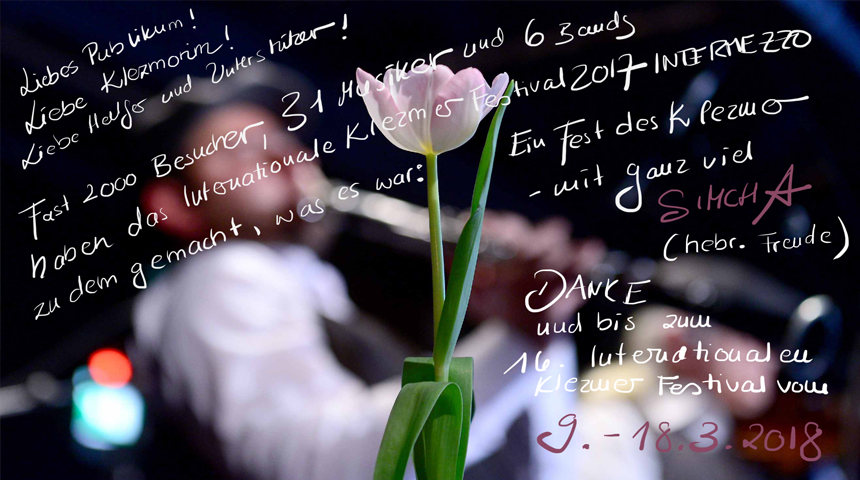 Liebes Publikum!
Liebe Klezmorim!
Liebe Helfer und Unterstützer!
Fast 2000 Besucher, 31 Musiker und 6 Bands
haben das Internationale Klezmer Festival 2017 INTERMEZZO
zu dem gemacht, was es war:
Ein Fest des Klezmer
- mit ganz viel
SIMCHA
(hebr. Freude)
DANKE
und bis zum
16. Internationalen
Klezmer Festival vom
9.-18.3.2018